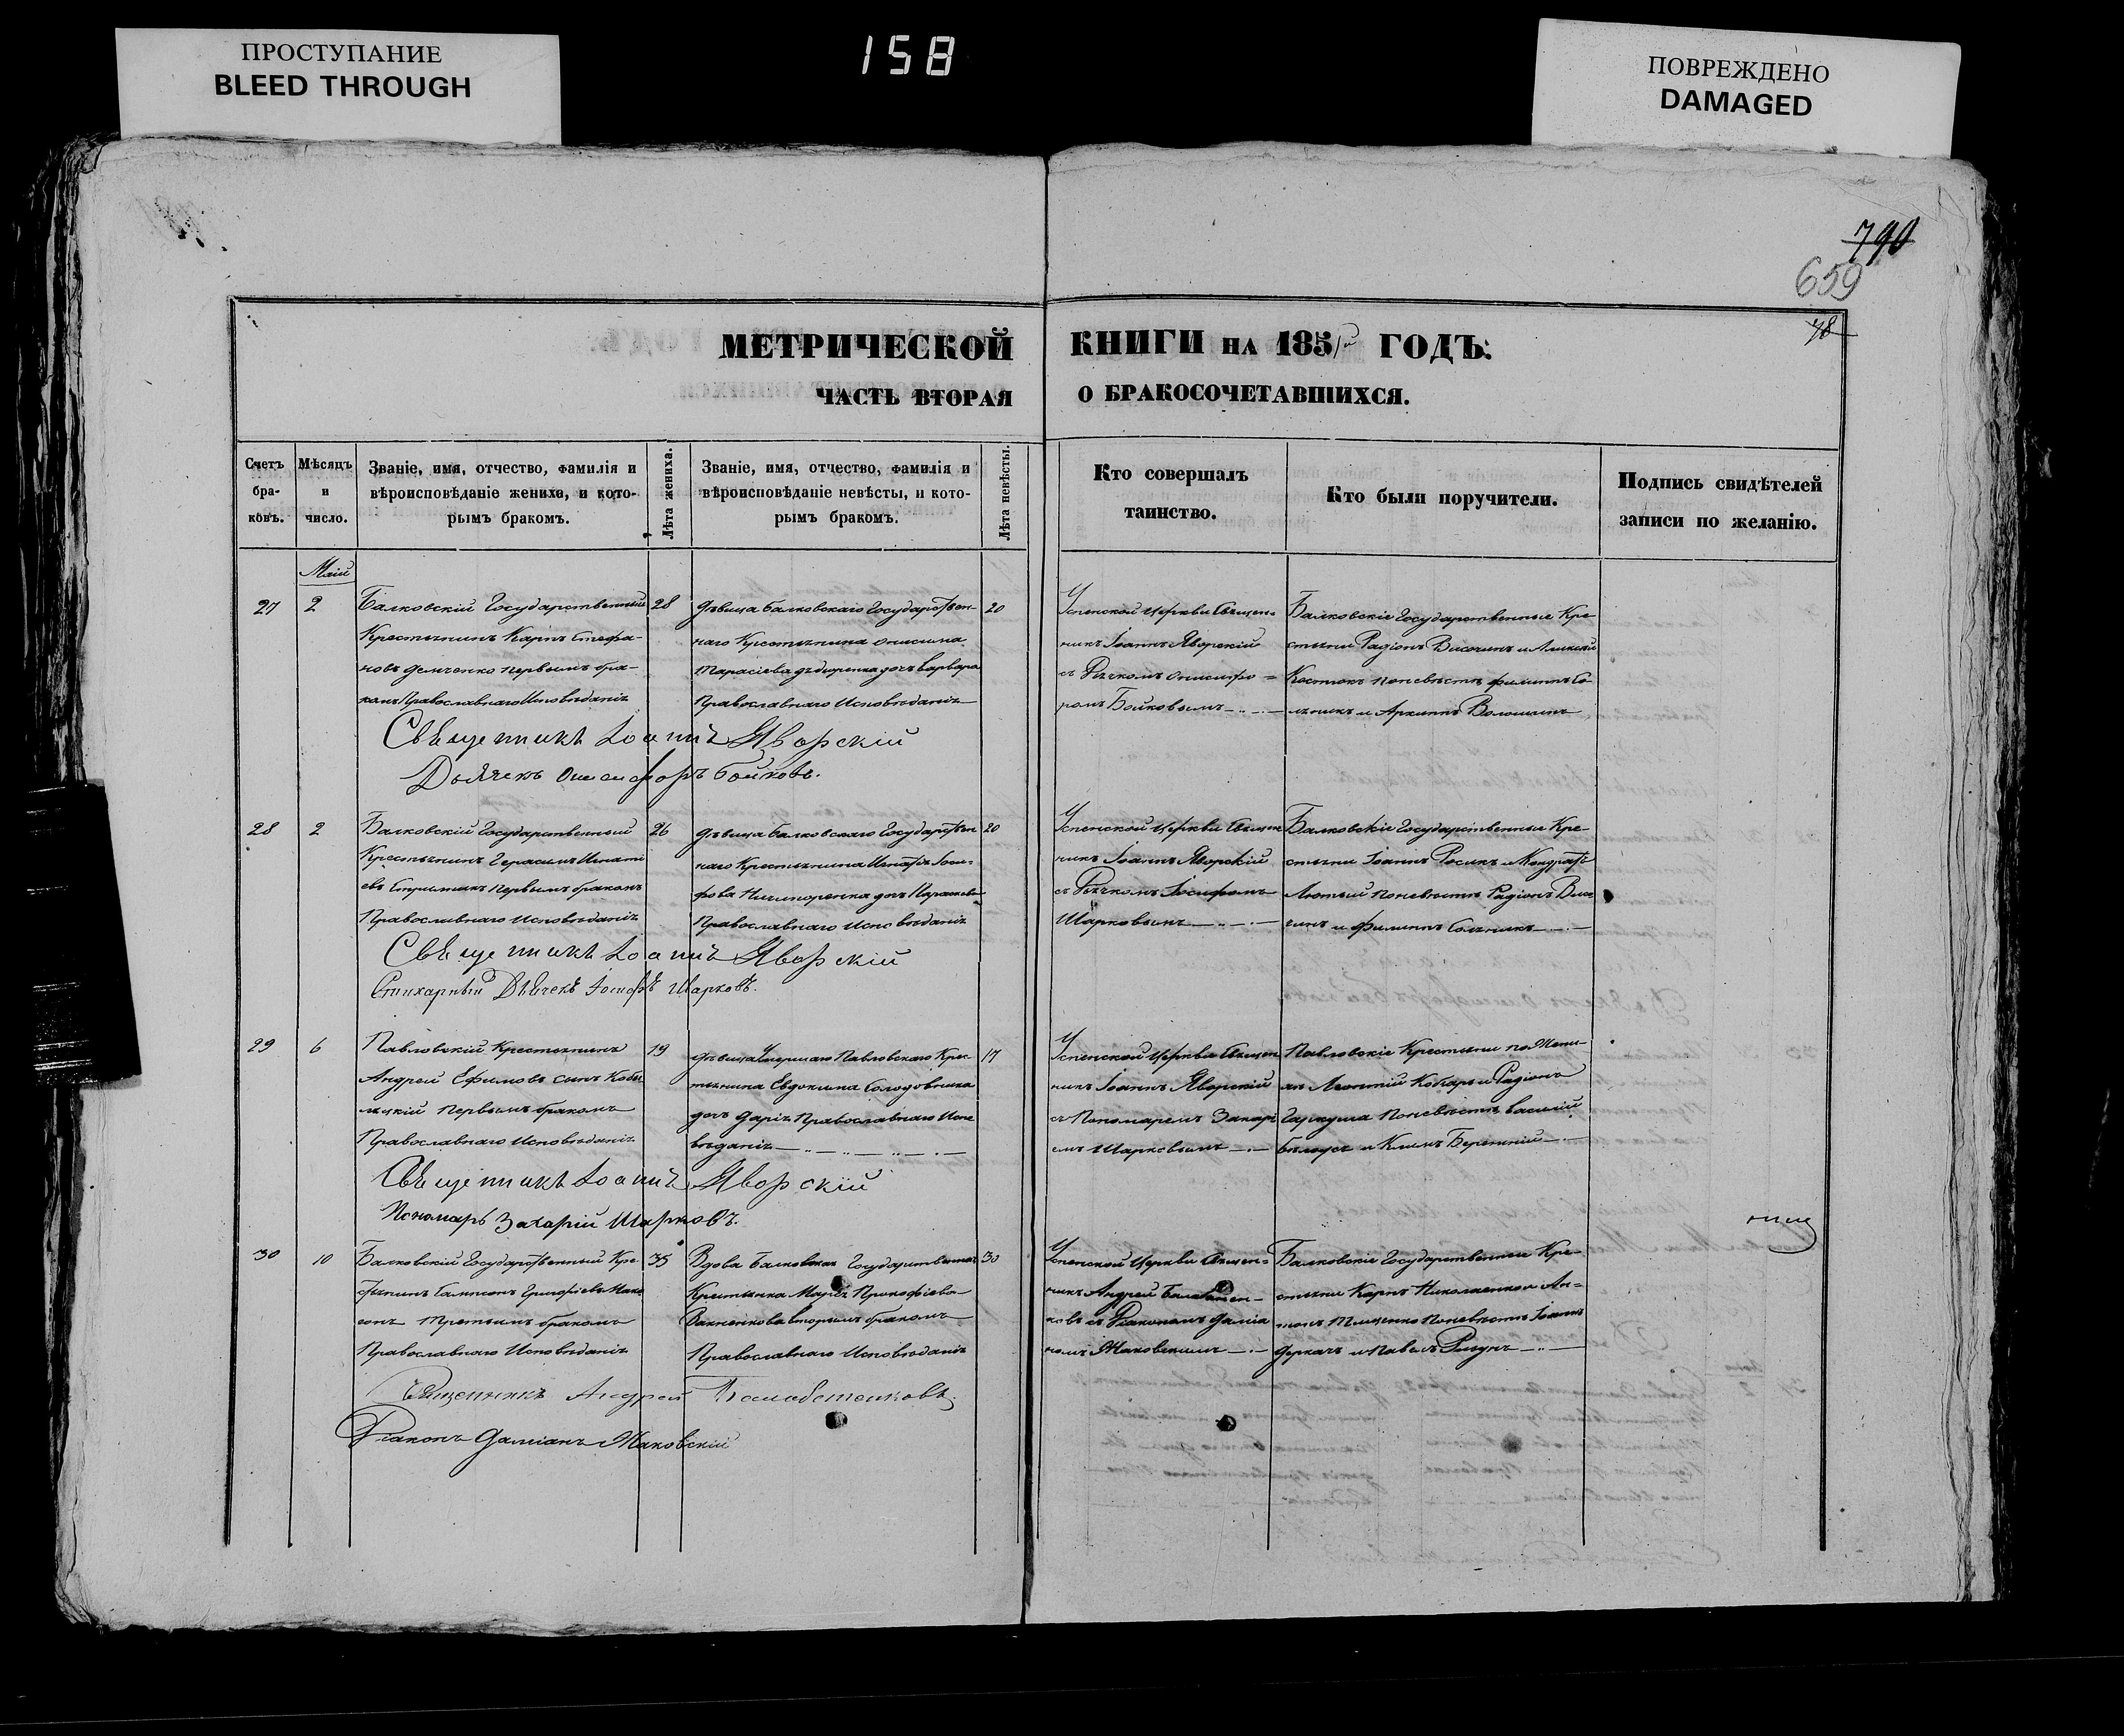 ПРОСТУПАНИЕ
BLEED THROUGH
158
ПОВРЕЖДЕНО
DAMAGED
790
659
78
МЕТРИЧЕСКОЙ КНИГИ НА 1851й ГОДЪ.
ЧАСТЬ ВТОРАЯ О БРАКОСОЧЕТАВШИХСЯ.
Счетъ бра- ковъ.
Мѣсяцъ и число.
Званіе, имя, отчество, фамилія и
вѣроисповѣданіе жениха, и кото-
рымъ бракомъ.
Лѣта жениха.
Званіе, имя, отчество, фамилія и
вѣроисповѣданіе невѣсты, и кото-
рымъ бракомъ.
Лѣта невѣсты.
Кто совершалъ
таинство.
Кто были поручители.
Подпись свидѣтелей
записи по желанію.
Маій
27
2
Балковскій Государственный
Крестьянинъ Карпъ Стефа-
новъ Демченко первымъ бра-
комъ Православнаго Исповѣданія
28
дѣвица Балковскаго Государствен-
наго Крестьянина Онисима
Тарасіева дочь Варвара
Православнаго Исповѣданія
20
Успенской Церкви Священ=
никъ Іоаннъ Яворскій
съ Дьячкомъ Онисифо=
ромъ Бойковымъ
Балковскіе Государственные Кре-
стьяни Радіонъ Височинъ и
Костюкъ Поневѣстѣ Филиппъ Со-
лѣникъ и Архиппъ Волошинъ
Священникъ Іоаннъ Яворскій
Дьячекъ Онисифоръ Бойковъ.
28
2
Балковскій Государственный
Крестьянинъ Герасимъ Игнаті
евъ первымъ бракомъ
Православнаго Исповѣданія
26
дѣвица Балковскаго Государствен
наго Крестьянина Игнатъ Іоси-
фова Ничипоренка дочь Параскева
Православнаго Исповѣданія
20
Успенской Церкви Священ
никъ Іоаннъ Яворскій
съ Дьячкомъ Іосифомъ
Шарковымъ
Балковскіе Государственные Кре-
стьяни Іоаннъ Росикъ и Кондратъ
Лютый Поневѣстѣ Радіонъ Висо
чинъ и Филиппъ Солѣникъ
Священникъ Іоаннъ Яворскій
Стихарный Дьячекъ Іосифъ Шарковъ.
29
6
Павловскій Крестьянинъ
Андрей Ефимовъ сынъ Кобы
ляцкій Первымъ бракомъ
Православнаго Исповѣданія
19
дѣвица Умершаго Павловскаго Крес-
тьянина Евдокима Солодовника
дочь Дарія Православнаго Испо
вѣданія
17
Успенской Церкви Священ
никъ Іоаннъ Яворскій
съ Пономаремъ Захарі
емъ Шарковымъ
Павловскіе Крестьяни по Жени-
хѣ Леонтій Кобзарь и Радіонъ
Гаркуша Поневѣстѣ Василій
Бѣлоусъ и Климъ Бережній
Священникъ Іоаннъ Яворскій
Пономарь Захарій Шарковъ.
30
10
Балковскій Государственный Кре
стьянинъ Сампсонъ Григоріевъ
Третьимъ бракомъ
Православнаго Исповѣданія
35
Вдова Балковская Государственная
Крестьянка Марія Прокофіева
вторымъ бракомъ
Православнаго Исповѣданія
30
Успенской Церкви Священ=
никъ Андрей Балабатен-
ковъ съ Діакономъ Даміа
номъ Маковскимъ
Балковскіе Государственные Кре-
стьяни Карпъ Николаенко и Ан=
тонъ Тищенко Поневѣстѣ Іоаннъ
Деркачъ и Павелъ
Священникъ Андрей Балабатенковъ.
Діаконъ Даміанъ Маковскій